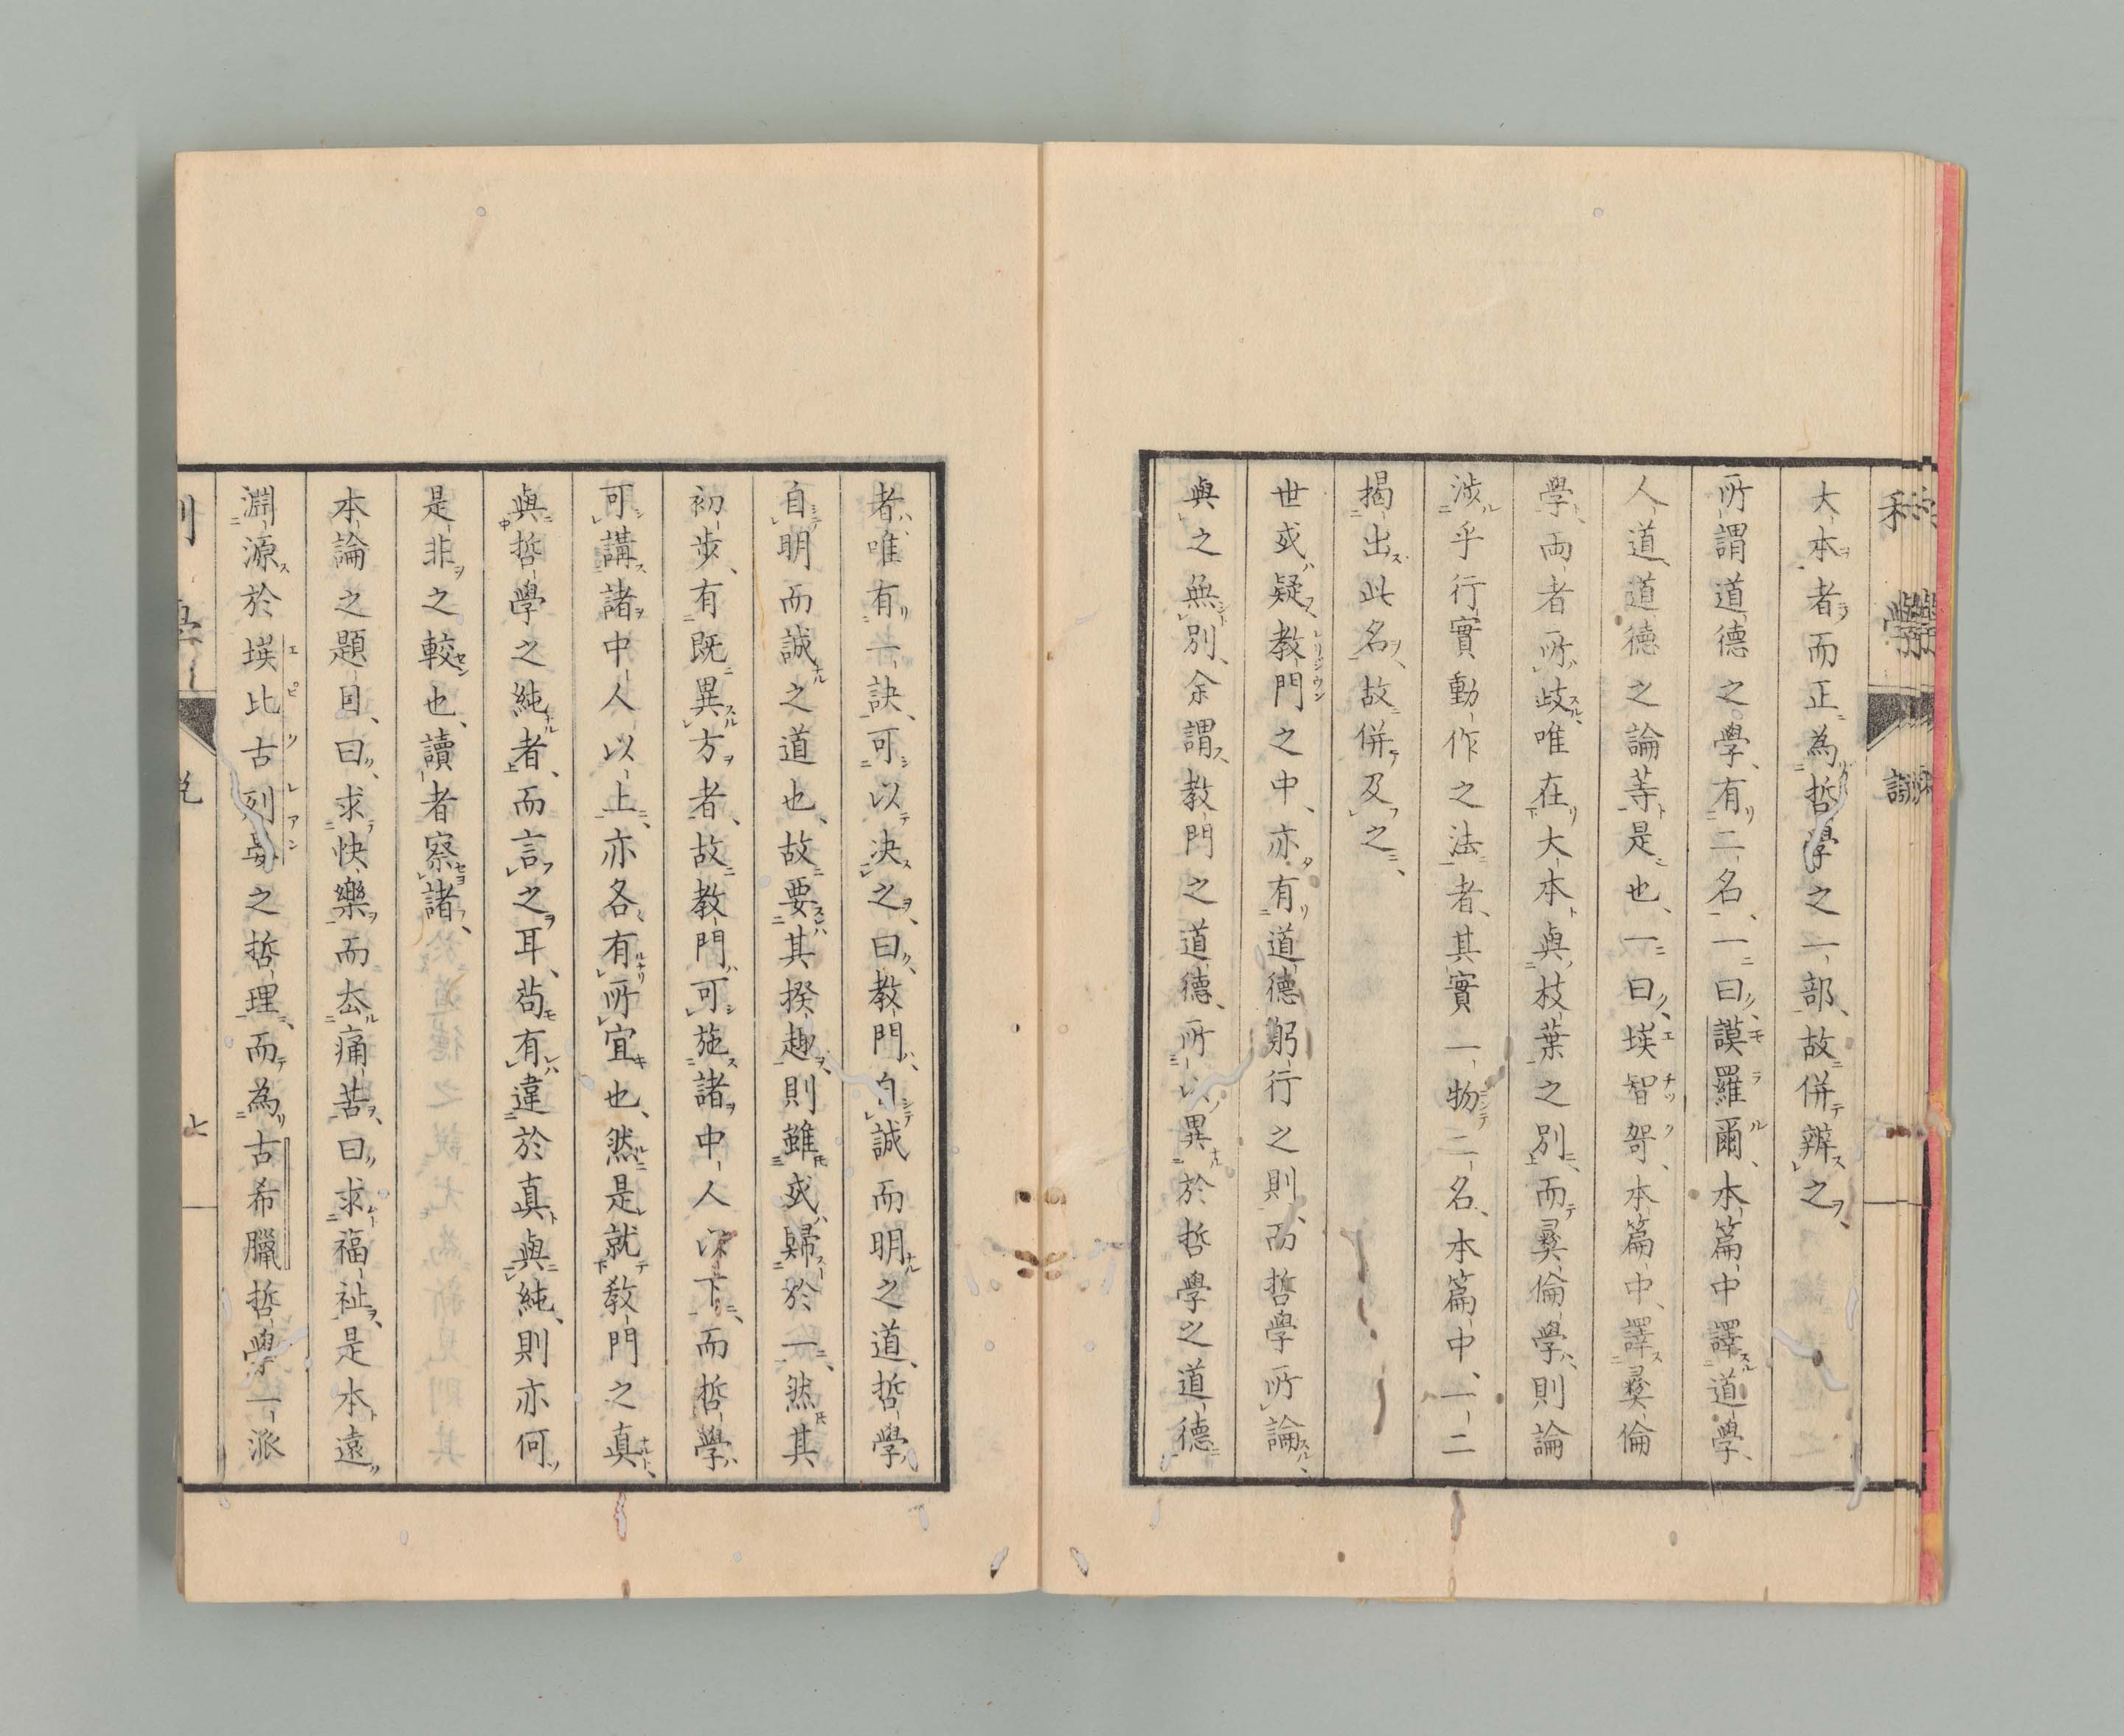 大本者而正為哲學之一部、故併辨之、
所謂道德之學、有二名、一曰、謨羅爾、本篇中譯道學、
人道、道德之論等是也、一曰、埃智智、本篇中、譯彝倫
學、兩者所岐唯在大本與枝葉之別、而彝倫學、則論
涉乎行實動作之法者、其實一物二名、本篇中、一二
揭出此名、故併及之、
世或疑教門之中、亦有道德躬行之則、而哲學所論、
與之無別、余謂教門之道德、所以異於哲學之道德
者、唯有一訣、可以決之、曰、教門、自誠而明之道、哲學
自明而誠之道也、故要其揆趣、則雖或歸於一、然其
初步、有既異方者、故教門可施諸中人以下、而哲學
可講諸中人以上、亦各有所宜也、然是就教門之真、
與哲學之純者、而言之耳、苟有違於真與純、則亦何
是非之較也、讀者察諸、
本論之題目、曰、求快樂而去痛苦、曰求福祉、是本遠
淵源於埃比古列 之哲理、而為古希臘哲學一派
七